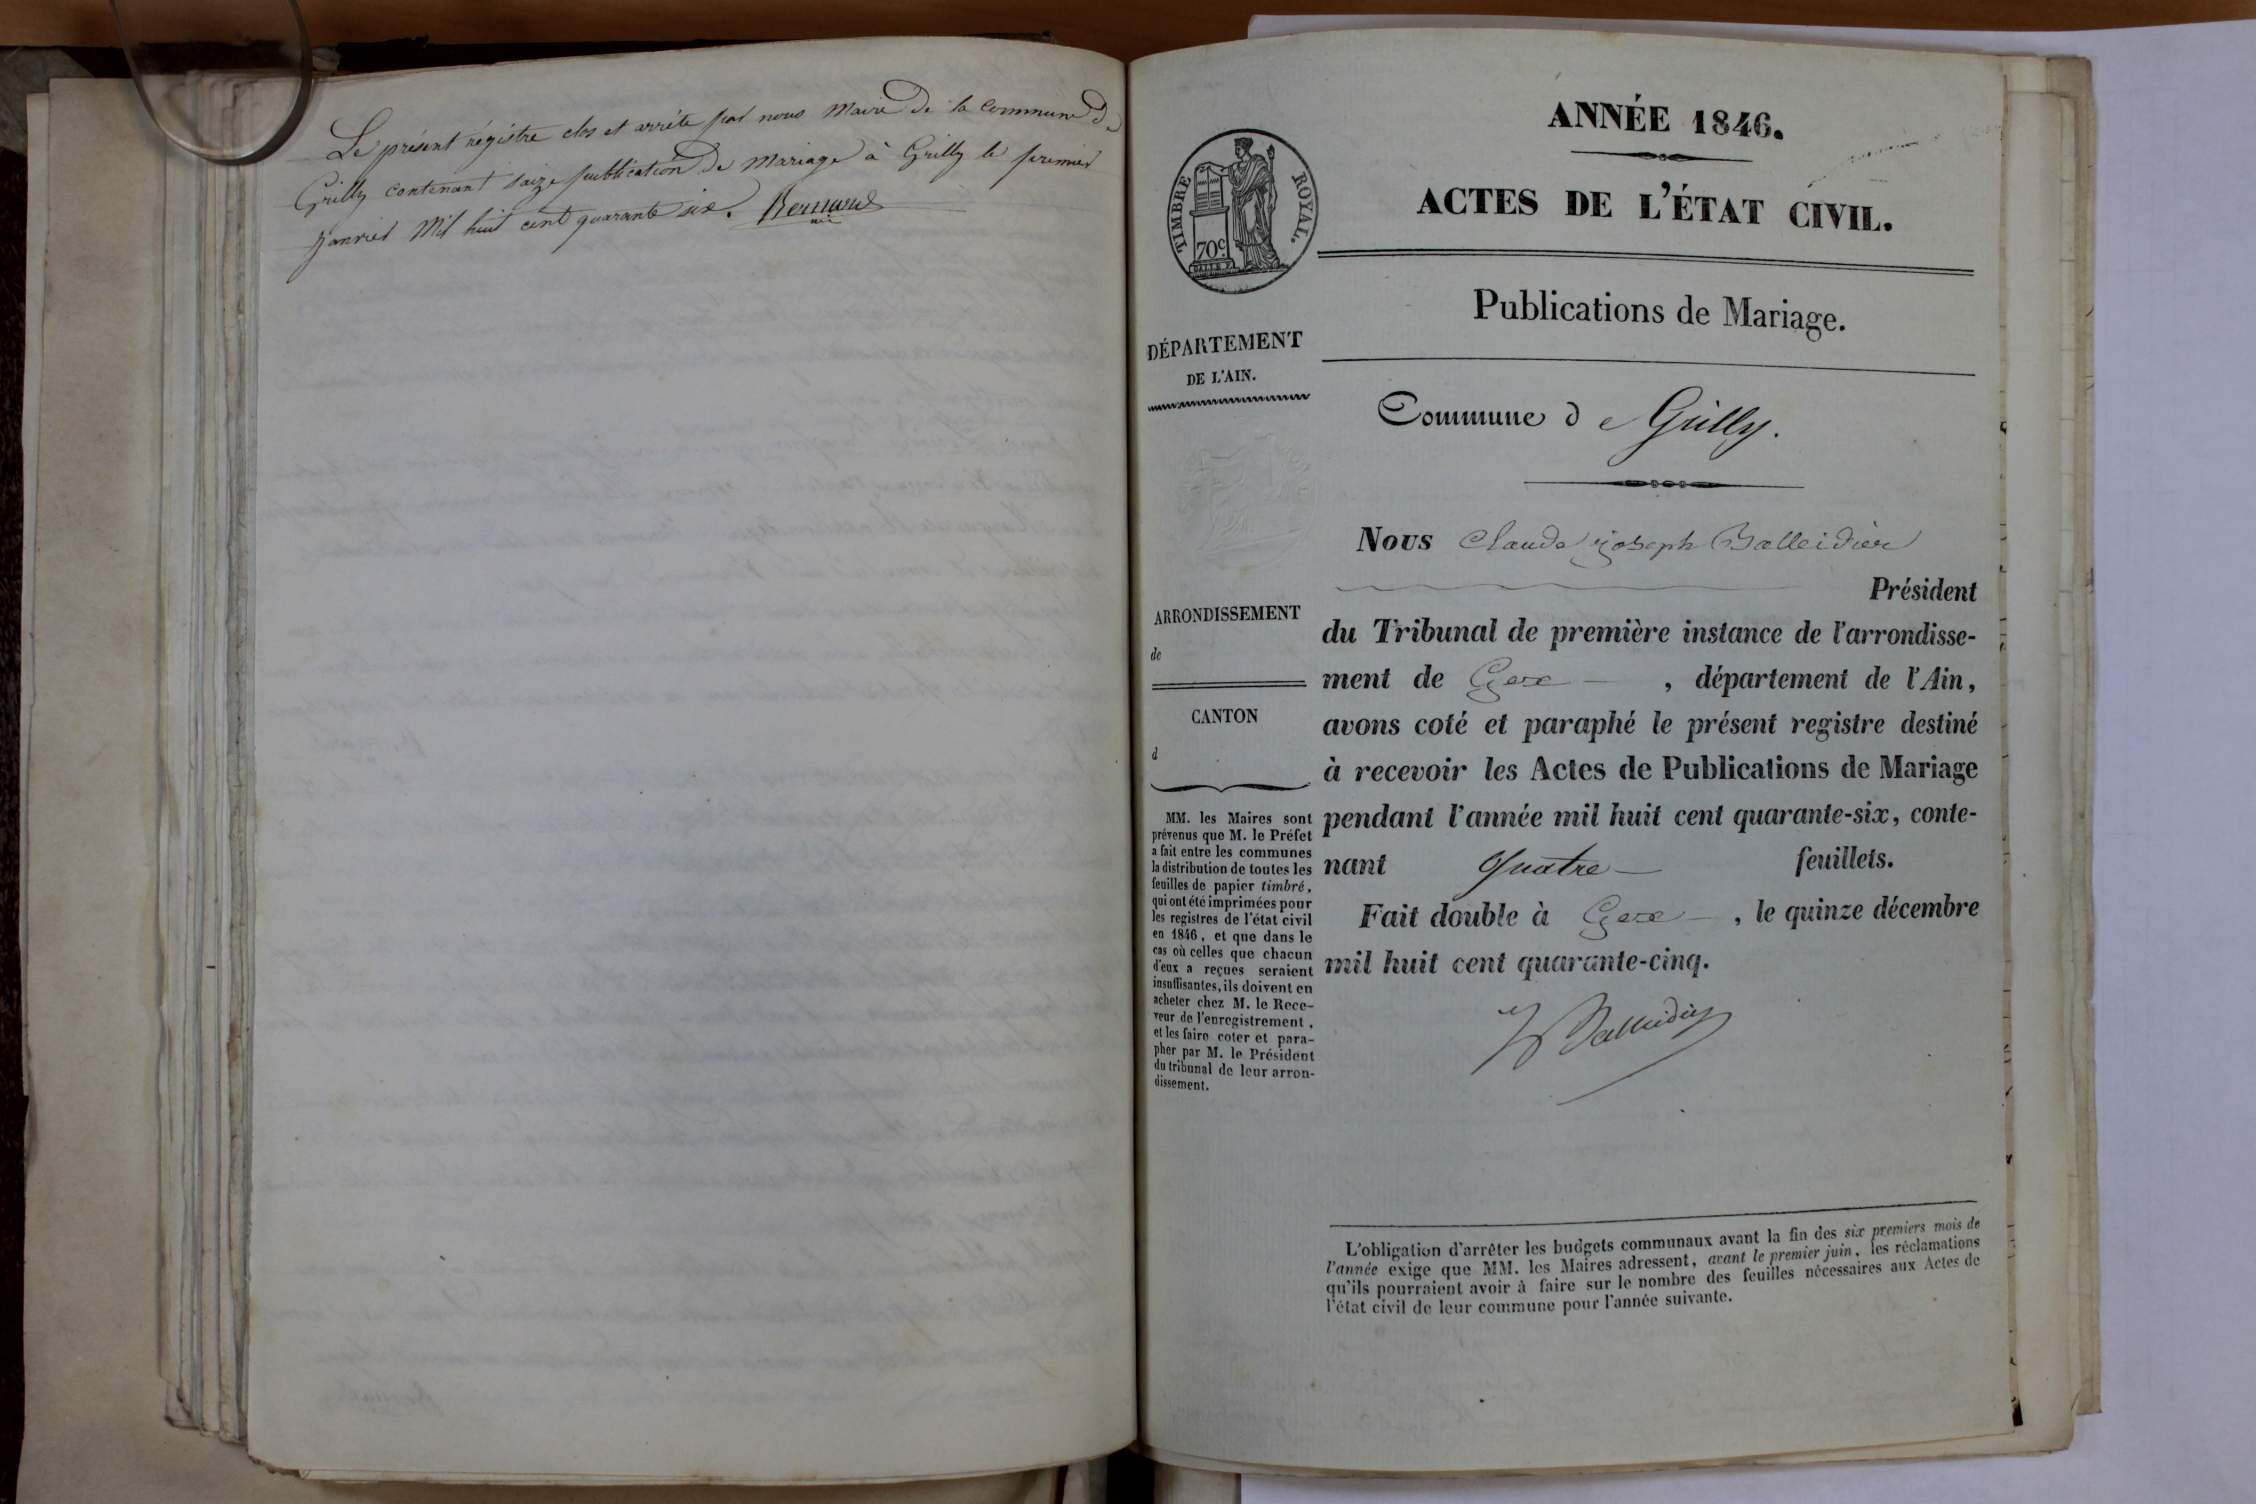 Le présent régistre clos et arrêté par nous Maire de la Commune de
Grilly contenant saize publication de Mariage à Grilly le premier
janvier Mil huit cent quarante six. Bernard
ANNÉE 1846.
ACTES DE L'ÉTAT CIVIL.
TIMBRE ROYAL.
70c.
Publications de Mariage.
DÉPARTEMENT
DE L'AIN.
Commune de Grilly.
Nous Claude joseph Balleidier
Président
ARRONDISSEMENT
de
CANTON
d
du Tribunal de première instance de l'arrondisse-
ment de Gex , département de l'Ain,
avons coté et paraphé le présent registre destiné
à recevoir les Actes de Publications de Mariage
pendant l'année mil huit cent quarante-six, conte-
nant quatre feuillets.
Fait double à Gex , le quinze décembre
mil huit cent quarante-cinq.
Balleidier
MM. les Maires sont
prévenus que M. le Préfet
a fait entre les communes
la distribution de toutes les
feuilles de papier timbré,
qui ont été imprimées pour
les registres de l'état civil
en 1846, et que dans le
cas où celles que chacun
d'eux a reçues seraient
insuffisantes, ils doivent en
acheter chez M. le Rece-
veur de l'enregistrement,
et les faire coter et para-
pher par M. le Président
du tribunal de leur arron-
dissement.
L'obligation d'arrêter les budgets communaux avant la fin des six premiers mois de
l'année exige que MM. les Maires adressent, avant le premier juin, les réclamations
qu'ils pourraient avoir à faire sur le nombre des feuilles nécessaires aux Actes de
l'état civil de leur commune pour l'année suivante.